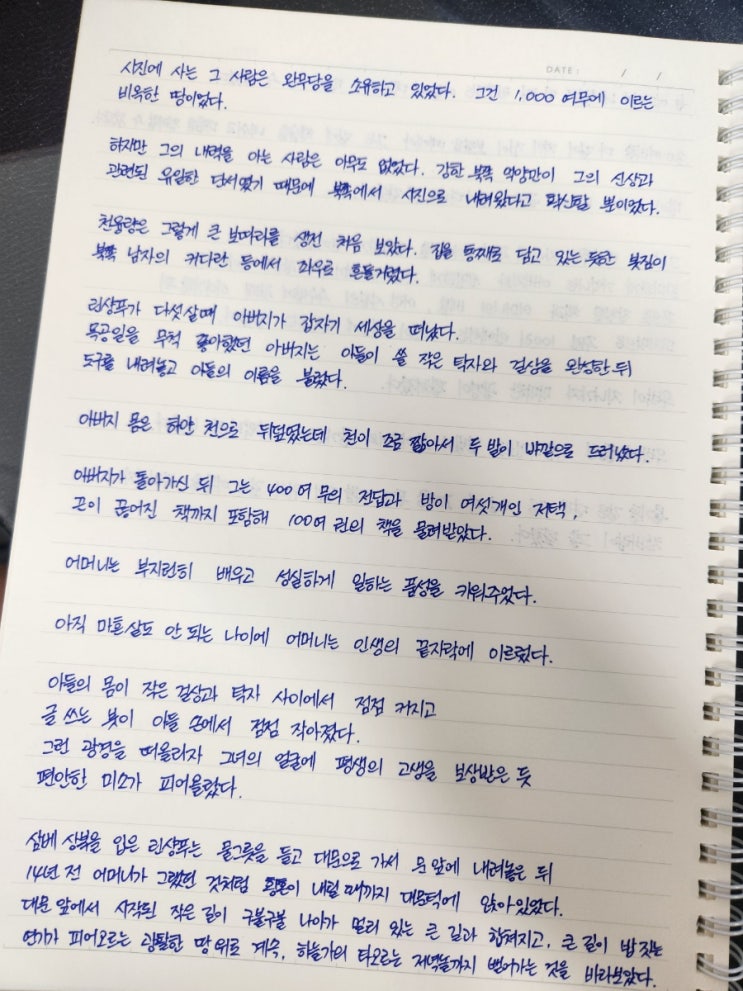 DATE : / /
시진에 사는 그 사람은 완무당을 소유하고 있었다. 그건 1,000여무에 이르는
비옥한 땅이었다.
하지만 그의 내력을 아는 사람은 아무도 없었다. 강한 북쪽 억양만이 그의 신상과
관련된 유일한 단서였기 때문에 북쪽에서 시진으로 내려왔다고 확신할 뿐이었다.
천융량은 그렇게 큰 보따리를 생전 처음 보았다. 집을 통째로 담고 있는 듯한 봇짐이
북쪽 남자의 커다란 등에서 좌우로 흔들거렸다.
린샹푸가 다섯살 때 아버지가 갑자기 세상을 떠났다.
목공일을 무척 좋아했던 아버지는 아들이 쓸 작은 탁자와 걸상을 완성한 뒤
도구를 내려놓고 아들의 이름을 불렀다.
아버지 몸은 하얀 천으로 뒤덮였는데 천이 조금 짧아서 두 발이 바깥으로 드러났다.
아버지가 돌아가신 뒤 그는 400여 무의 전답과 방이 여섯개인 저택,
끈이 끊어진 책까지 포함해 100여 권의 책을 물려받았다.
어머니는 부지런히 배우고 성실하게 일하는 품성을 키워주었다.
아직 마흔살도 안 되는 나이에 어머니는 인생의 끝자락에 이르렀다.
아들의 몸이 작은 걸상과 탁자 사이에서 점점 커지고
글 쓰는 붓이 아들 손에서 점점 작아졌다.
그런 광경을 떠올리자 그녀의 얼굴에 평생의 고생을 보상받은 듯
편안한 미소가 피어올랐다.
삼베 상복을 입은 린샹푸는 물그릇을 들고 대문으로 가서 문 앞에 내려놓은 뒤
14년 전 어머니가 그랬던 것처럼 황혼이 내릴 때까지 대문턱에 앉아있었다.
대문 앞에서 시작된 작은 길이 구불구불 나아가 멀리 있는 큰 길과 합쳐지고, 큰 길이 밥 짓는
연기가 피어오르는 광활한 땅 위로 계속, 하늘가의 타오르는 저녁놀까지 뻗어가는 것을 바라보았다.